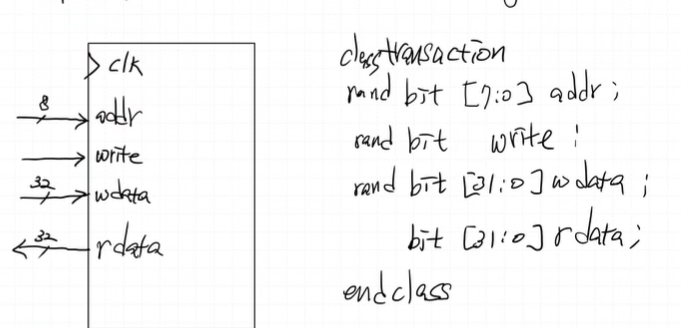 clk
8
addr
write
32
wdata
32
rdata
class transaction
rand bit [7:0] addr;
rand bit write;
rand bit [31:0] wdata;
bit [31:0] rdata;
endclass